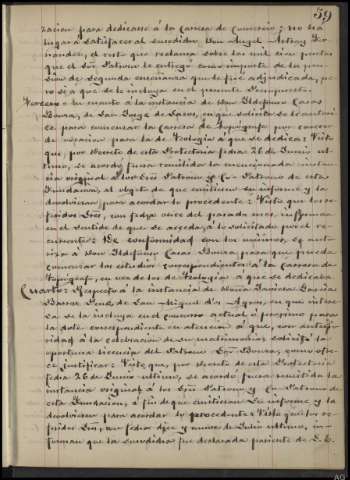 59
zacion para dedicarse á la Carrera de Comercio; no há
lugar á satisfacer al susodicho Don Angel Antony Fer-
nandez, el resto que reclama sobre las mil cien pesetas
que el Sor. Patrono le entregó como importe de la pen-
sion de segunda enseñanza que le fué adjudicada, pe-
ro sí á que se le incluya en el presente Presupuesto.
Tercero: En cuanto á la instancia de Don Ildefonso Casas
Bouza, de San Jorge de Sacos, en que solicita se le autori-
ce para comenzar la Carrera de topógrafo por carecer
de vocacion para la de Teología á que se dedica: Visto
que, por decreto de esta Protectoria fecha 26 de Junio úl-
timo, se acordó fuera remitida la mencionada instan-
cia original á los Sres. Patrono y Co-Patrono de esta
Fundacion, al objeto de que emitiesen su informe y la
devolviesen para acordar lo procedente: Visto que los re-
feridos Sres., con fecha once del pasado mes, informan
en el sentido de que se acceda á lo solicitado por el re-
currente: De conformidad con los mismos, se auto-
riza á Don Ildefonso Casas Bouza para que pueda
comenzar los estudios correspondientes á la Carrera de
topógrafo, en vez de los de Teología á que se dedicaba.
Cuarto: Respecto á la instancia de María Javiera García
Barros, de San Miguel de
se la incluya en el concurso actual ó próximo para
la dote correspondiente en atencion á que, con anterio-
ridad á la celebracion de su matrimonio solicitó la
oportuna licencia del Patrono Sor. Bouza, como ofre-
ce justificar: Visto que, por decreto de esta Protectoria
fecha 26 de Junio último, se acordó fuera remitida la
instancia original á los Sres. Patrono y Co-Patrono de
esta Fundacion, á fin de que emitiesen su informe y la
devolviesen para acordar lo procedente: Visto que los re-
feridos Sres., con fechas diez y nueve de Julio último, in-
forman que la susodicha fué declarada pariente de D.